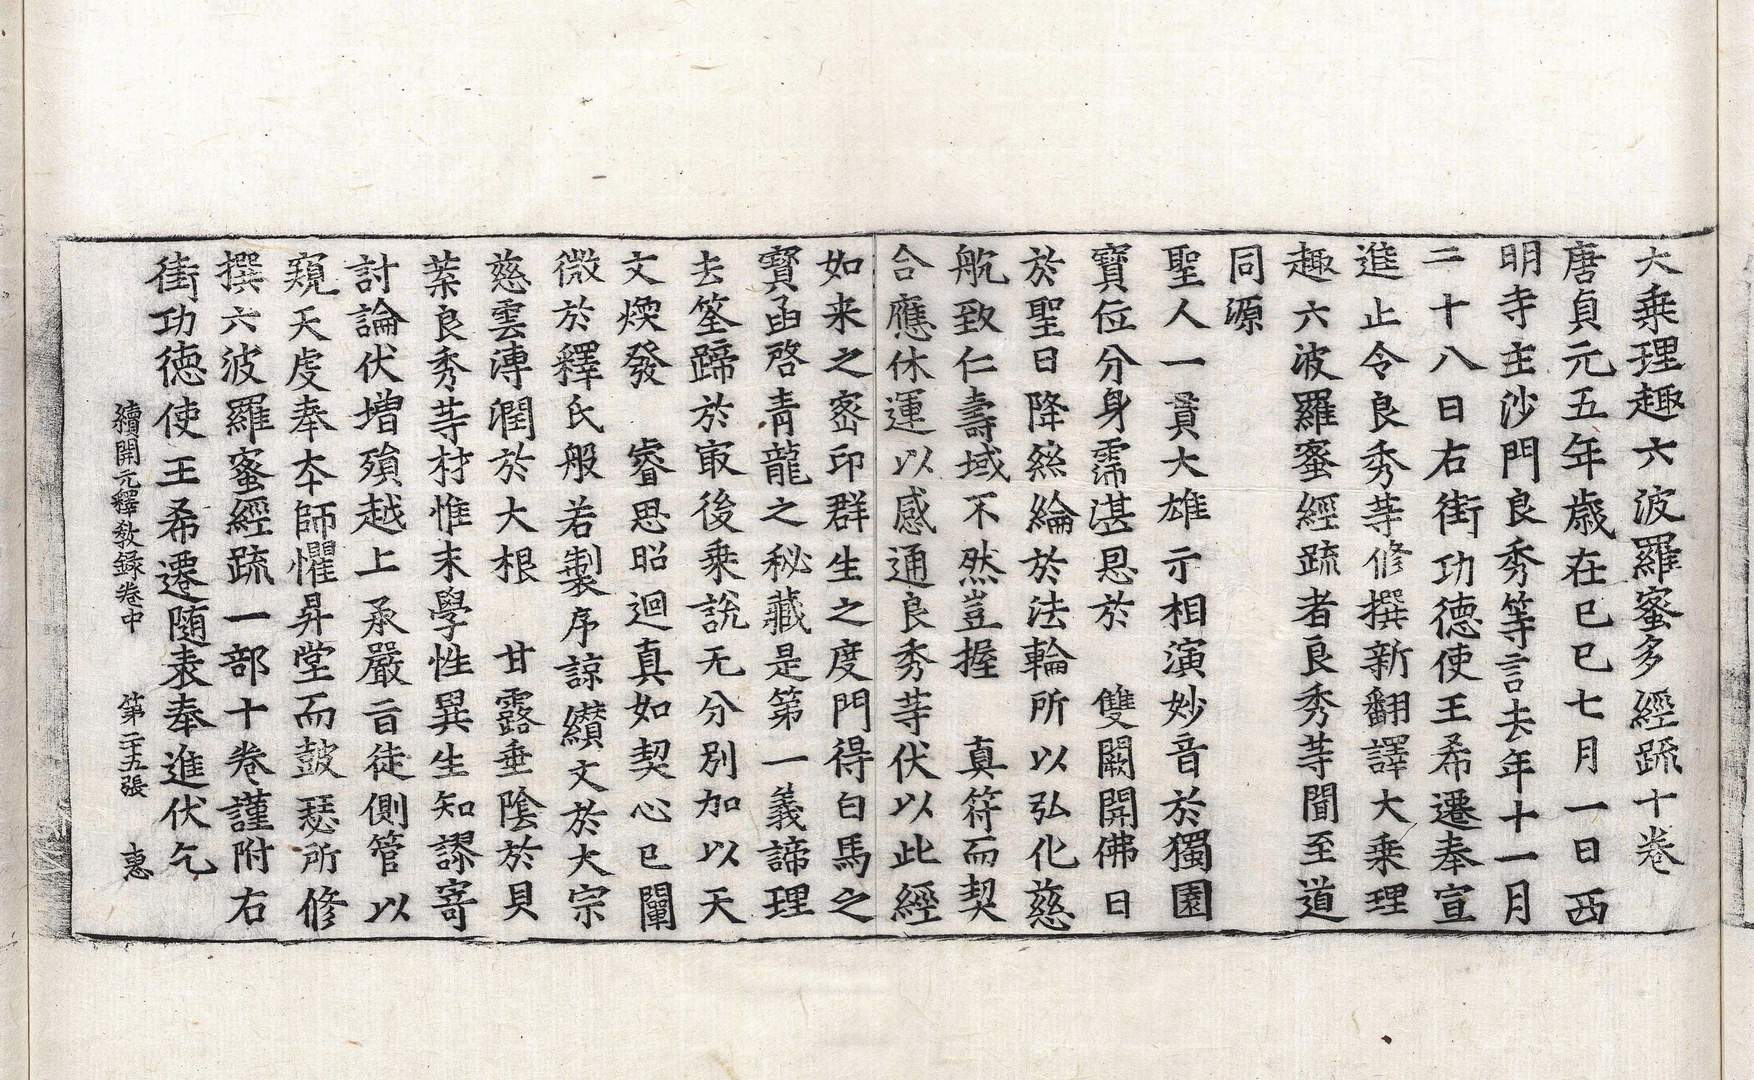 大乘理趣六波羅蜜多經疏十卷
唐貞元五年歲在己巳七月一日西
明寺主沙門良秀等言去年十一月
二十八日右街功德使王希遷奉宣
進止令良秀䓁修撰新翻譯大乘理
趣六波羅蜜經疏者良秀䓁聞至道
同源
聖人一貫大雄示相演妙音於獨園
寶位分身霈湛恩於　雙闕開佛日
於聖日降絲綸於法輪所以弘化慈
航致仁壽域不然豈握　真符而契
合應休運以感通良秀䓁伏以此經
如来之密印群生之度門得白馬之
寶函啓青龍之秘藏是第一義諦理
去筌蹄於㝡後乘說无分別加以天
文煥發　睿思昭迴真如契心已闡
微於釋氏般若製序諒纘文於大宗
慈雲溥潤於大根　甘露垂陰於貝
葉良秀䓁材惟末學性異生知謬寄
討論伏增殞越上承嚴旨徒側管以
窺天虔奉本師懼昇堂而鼓瑟所修
撰六波羅蜜經疏一部十卷謹附右
街功德使王希遷隨表奉進伏乞
續開元釋教録卷中　第二十五張　惠